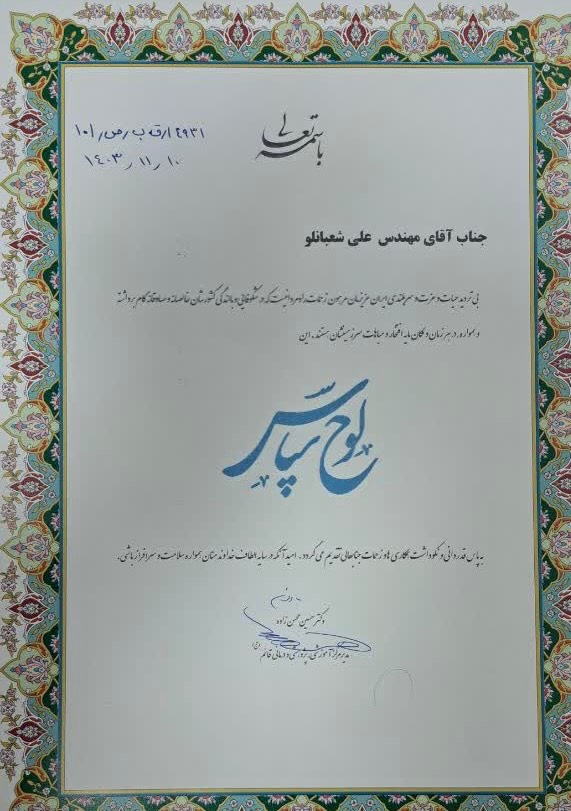 باسمه تعالی
۲۹۳۱/ق ب ر ص/۱۰۱
۱۴۰۳/۱۱/۱۰
جناب آقای مهندس علی شعبانلو
بی تردید حیات و عزت و سربلندی ایران عزیزمان مرهون زحمات رادمردانیست که در شکوفایی و بالندگی کشورشان خالصانه و صادقانه گام برداشته
و همواره در هر زمان و مکان مایه افتخار و مباهات سرزمینشان هستند. این
لوح سپاس
به پاس قدردانی و نکوداشت همکاری ها و زحمات جنابعالی تقدیم می گردد. امید آنکه در سایه الطاف خداوند منان همواره سلامت و سرافراز باشی.
دکتر حسین محسن زاده
مدیر مرکز آموزشی، پژوهشی و درمانی قائم (عج)